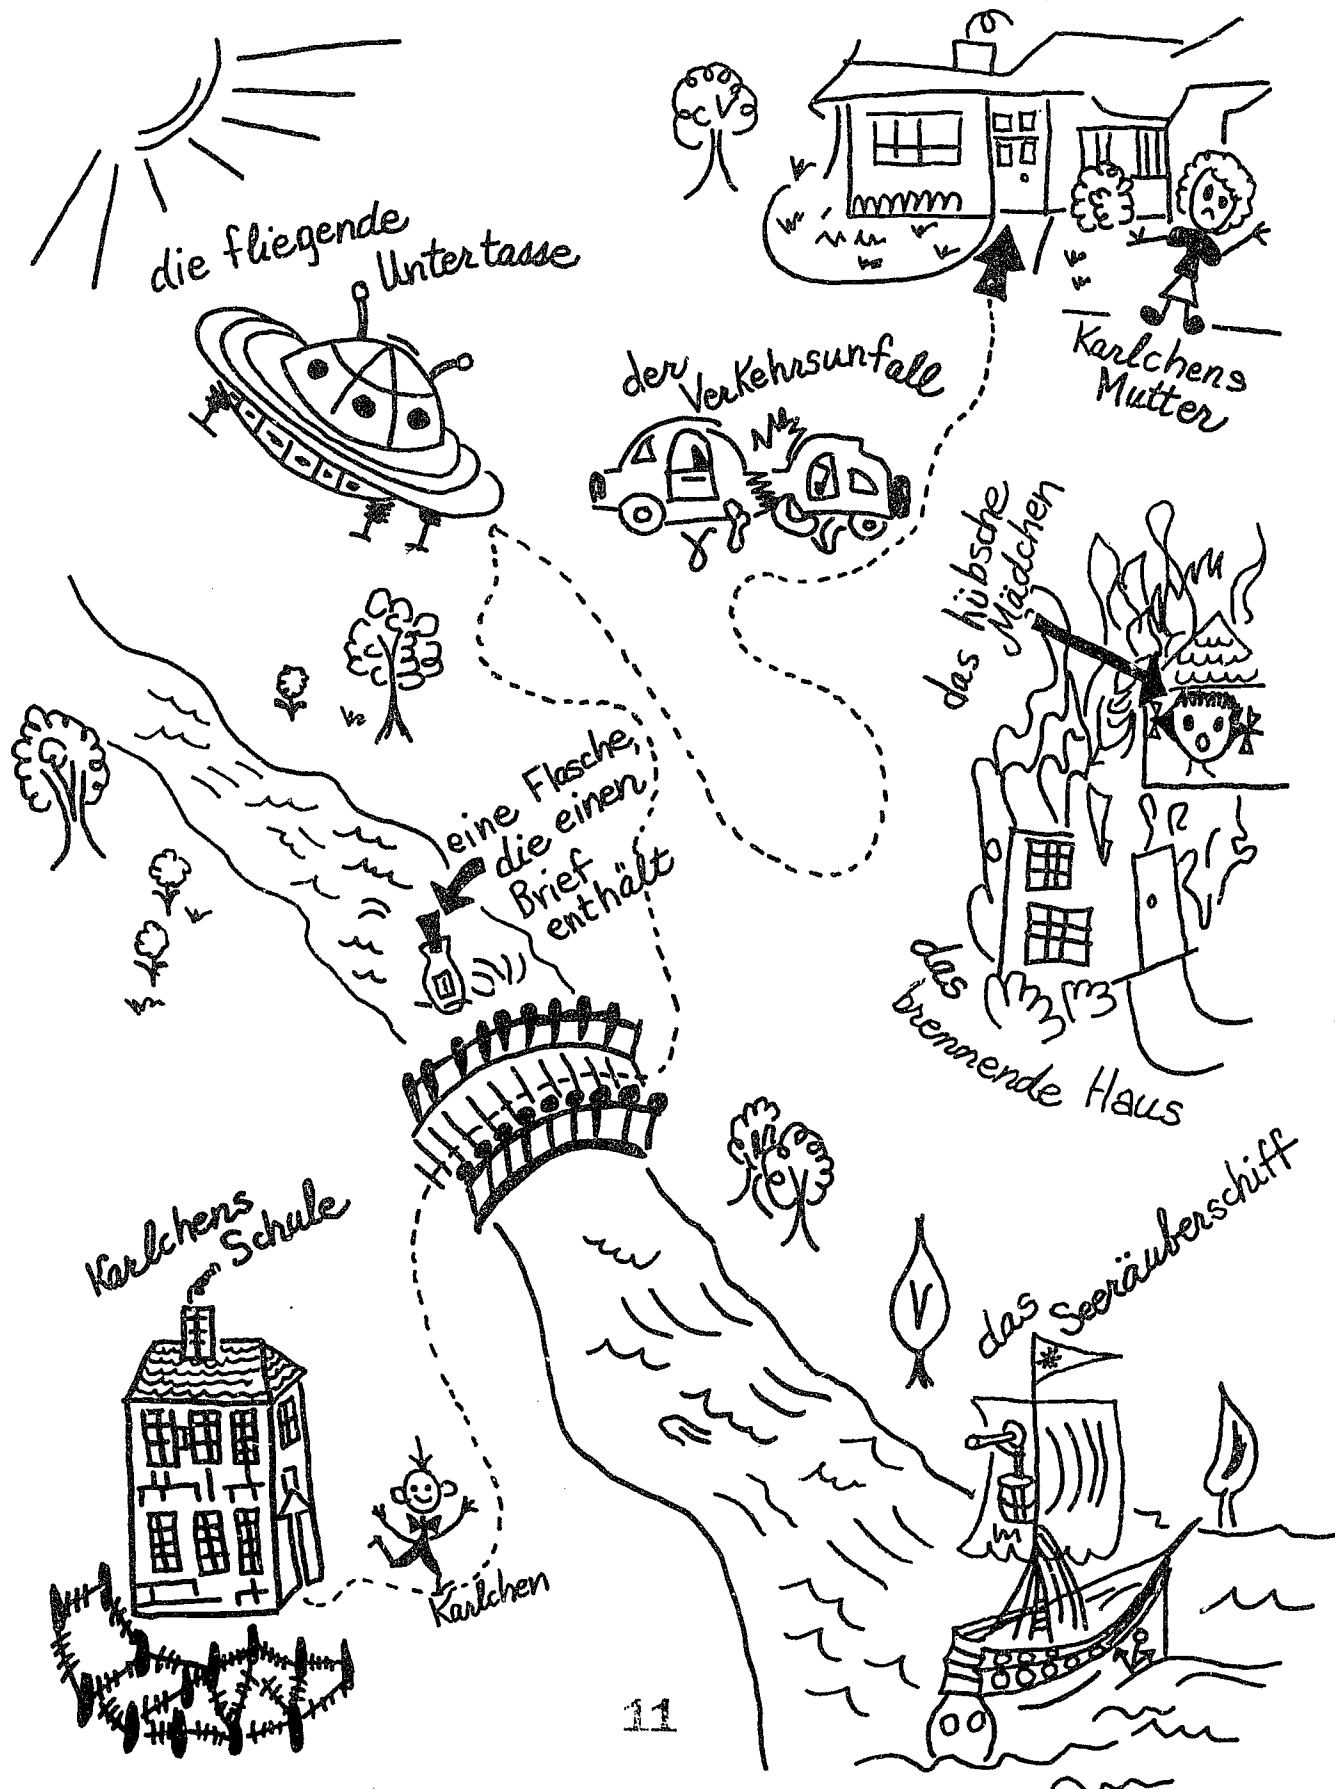 die fliegende
Untertasse
der
Verkehrsunfall
Karlchens
Mutter
das hübsche
Mädchen
eine Flasche,
die einen
Brief
enthält
das
brennende Haus
Karlchens
Schule
das Seeräuberschiff
Karlchen
11